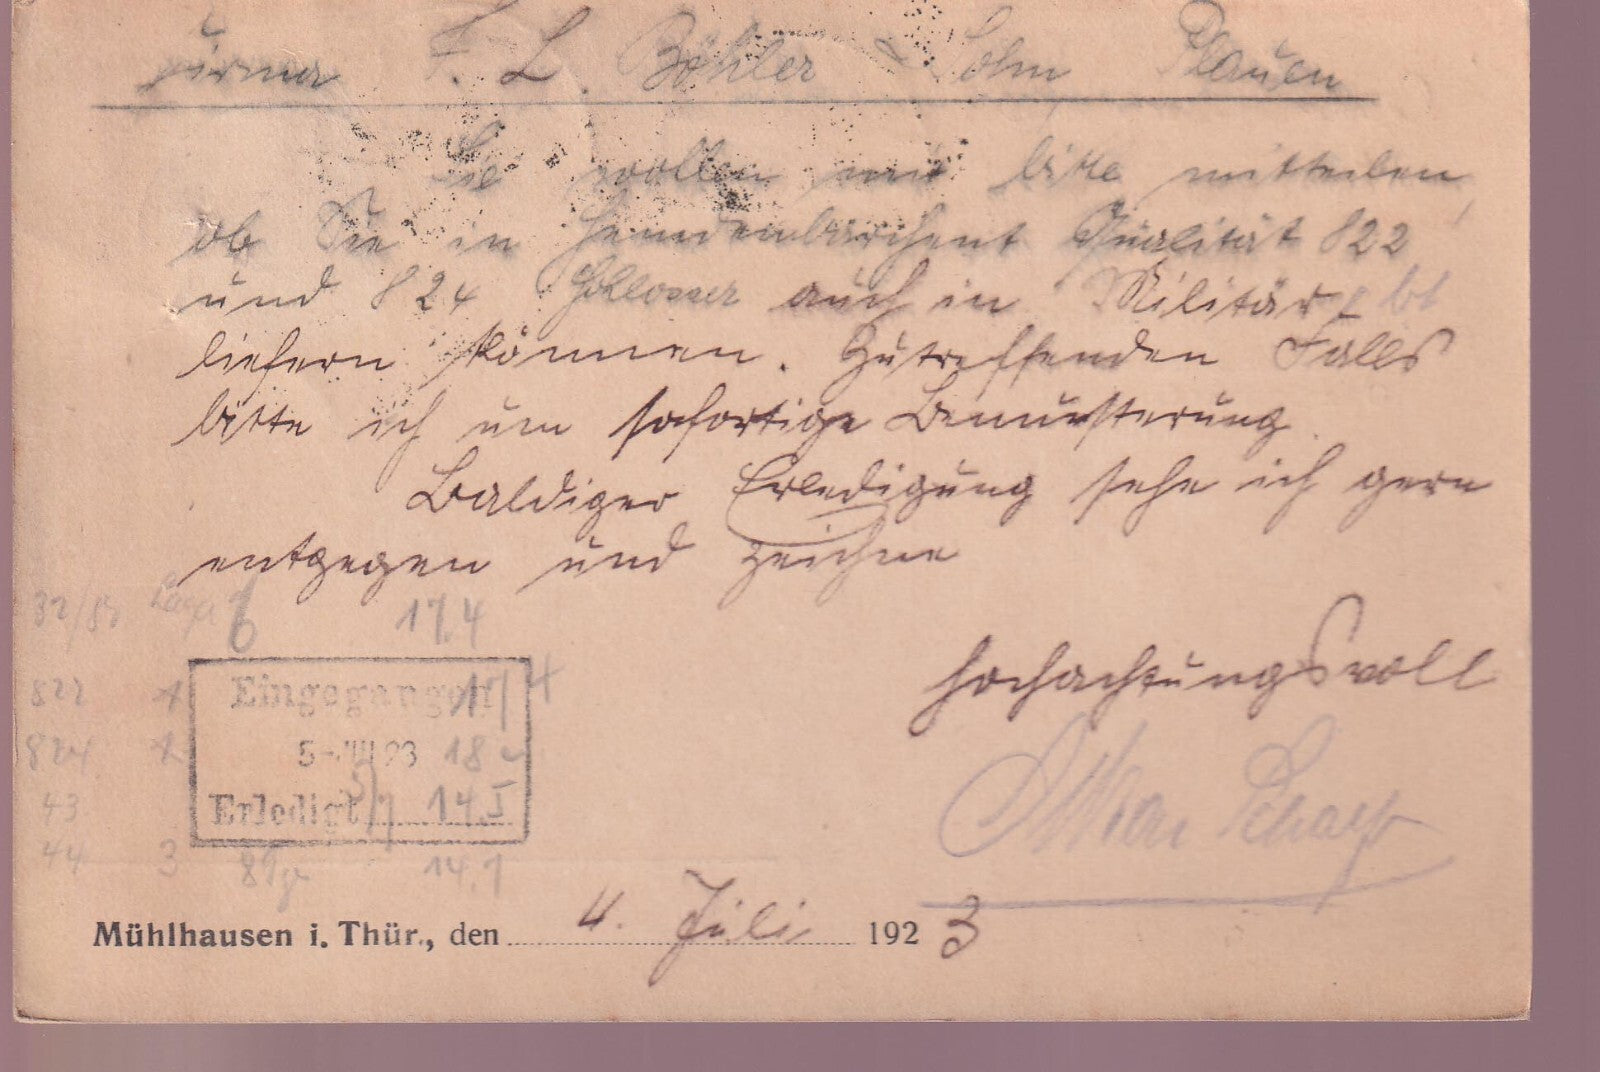 Firma F. L. Böhler & Sohn Plauen
Sie wollen mir bitte mitteilen,
ob Sie in Hemdenbarchent Qualität 822
und 824 auch in Militär
liefern können. Zutreffenden Falls
bitte ich um sofortige Bemusterung.
Baldiger Erledigung sehe ich gern
entgegen und zeichne
hochachtungsvoll
32/83 Lager 17.4
822 Eingegangen 17 4
824 5-VII.23 18
43 Erledigt 14.
44 3 14.
Mühlhausen i. Thür., den 4. Juli 1923